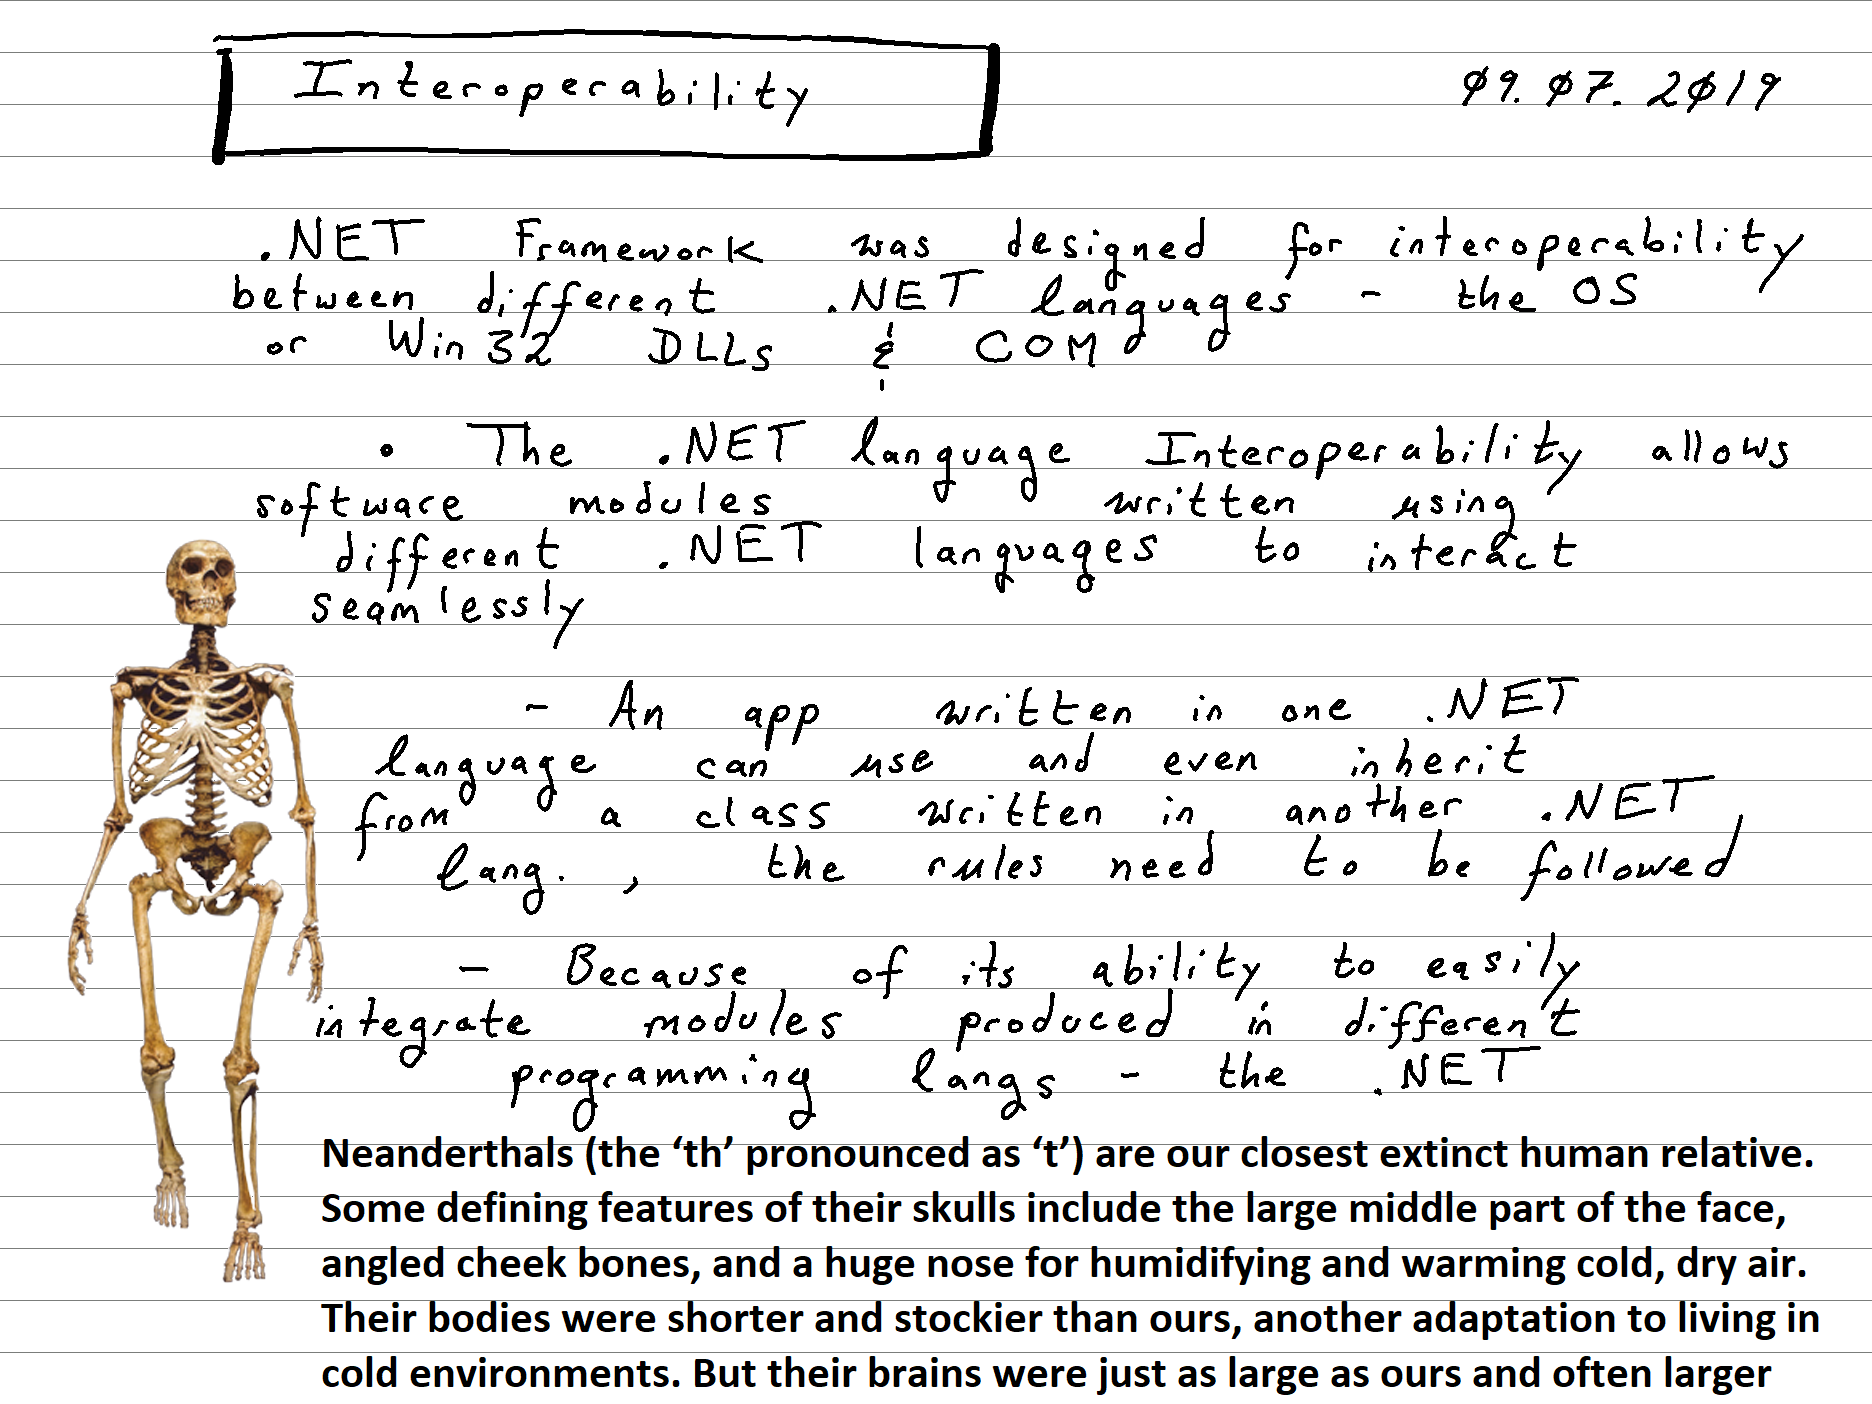 Interoperability
09.07.2019
.NET Framework was designed for interoperability
between different .NET languages - the OS
or Win32 DLLs & COM
• The .NET language Interoperability allows
software modules written using
different .NET languages to interact
seamlessly
- An app written in one .NET
language can use and even inherit
from a class written in another .NET
lang. , the rules need to be followed
- Because of its ability to easily
integrate modules produced in different
programming langs - the .NET
Neanderthals (the ‘th’ pronounced as ‘t’) are our closest extinct human relative.
Some defining features of their skulls include the large middle part of the face,
angled cheek bones, and a huge nose for humidifying and warming cold, dry air.
Their bodies were shorter and stockier than ours, another adaptation to living in
cold environments. But their brains were just as large as ours and often larger